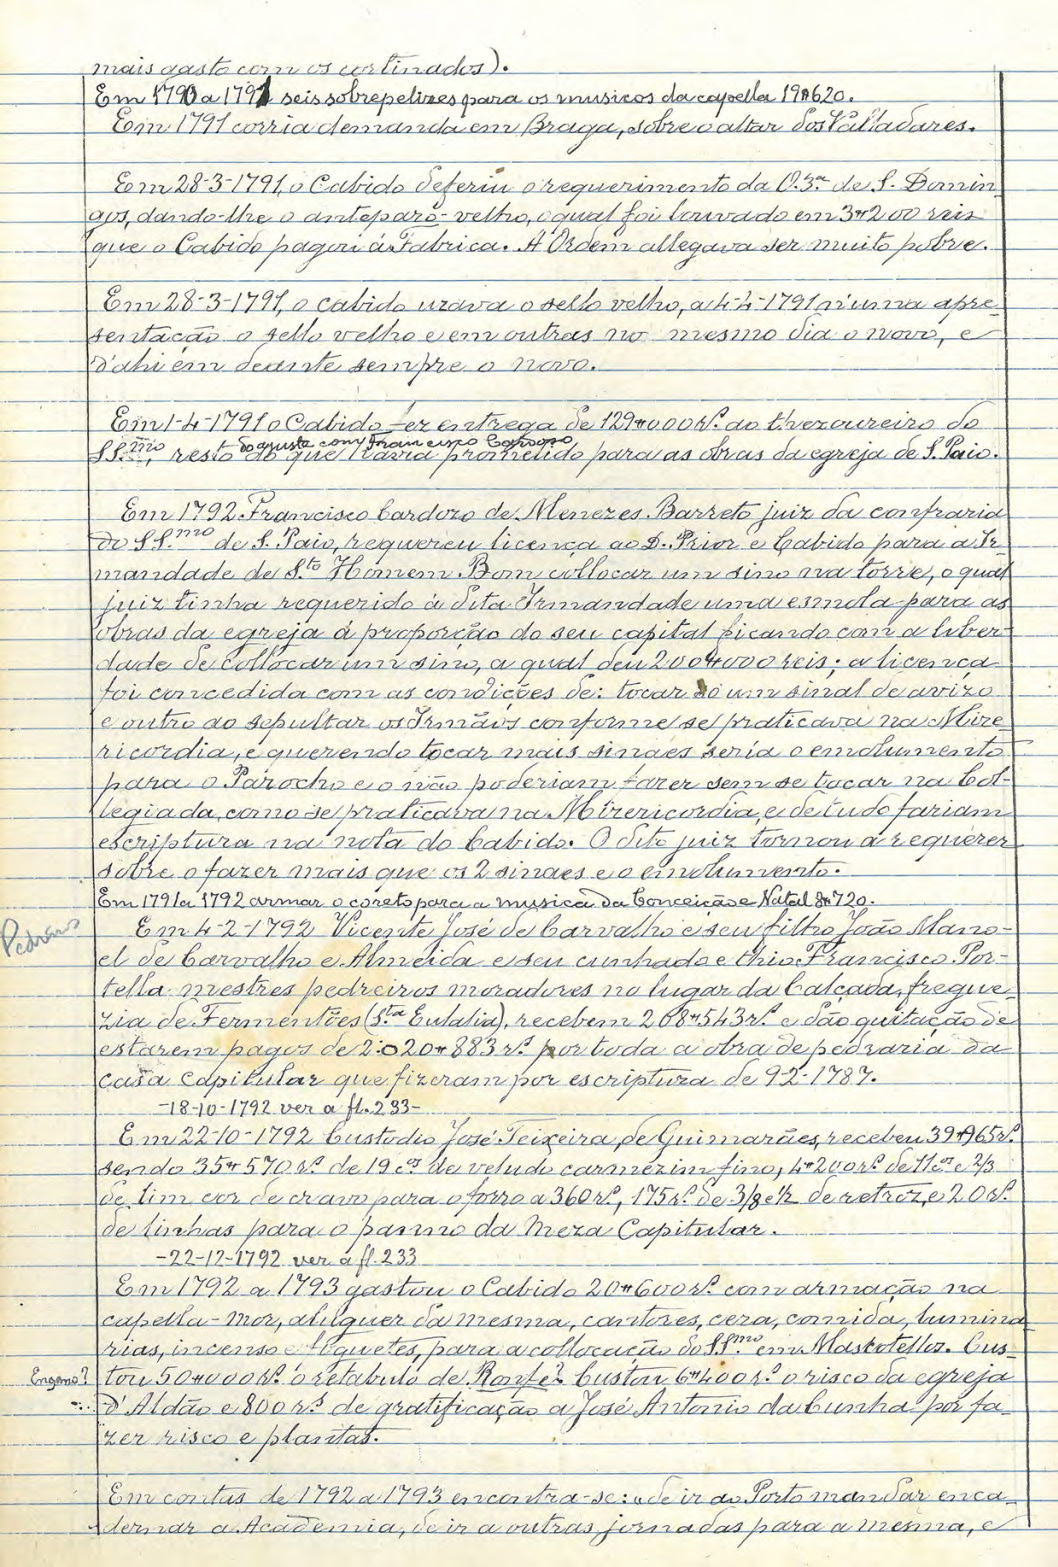 mais gasto com os cortinados).
Em 1790 a 1791 seis sobrepelizes para os musicos da capella 19$620.
Em 1791 corria demanda em Braga, sobre o altar dos Valladares.
Em 28-3-1791, o Cabido deferiu o requerimento da O. 3.ª de S. Domin-
gos, dando-lhe o anteparo-velho, o qual foi louvado em 3$200 reis
que o Cabido pagou á Fabrica. A Ordem allegava ser muito pobre.
Em 28-3-1791, o cabido uzava o sello velho, a 4-4-1791 n'uma apre-
sentação o sello velho e em outras no mesmo dia o novo, e
d'ahi em deante sempre o novo.
Em 1-4-1791 o Cabido fez entrega de 129$000 r.s ao thezoureiro do
do ajuste com Francisco Cardoso
SS.mo, resto do que havia promettido para as obras da egreja de S. Paio.
Em 1792 Francisco Cardozo de Menezes Barreto juiz da confraria
do SS.mo de S. Paio, requereu licença ao D. Prior e Cabido para a Ir-
mandade de S.to Homem Bom collocar um sino na torre, o qual
juiz tinha requerido á dita Irmandade uma esmola para as
obras da egreja á proporção do seu capital ficando com a liber-
dade de collocar um sino, a qual deu 200$000 reis; a licença
foi concedida com as condições de: tocar só um sinal de avizo
e outro ao sepultar os Irmãos conforme se praticava na Mize
ricordia, e querendo tocar mais sinaes seria o emolumento
para o Parocho e o não poderiam fazer sem se tocar na Col-
legiada, como se praticava na Mizericordia, e de tudo fariam
escriptura na nota do Cabido. O dito juiz tornou a requerer
sobre o fazer mais que os 2 sinaes e o emolumento.
Em 1791 a 1792 armar o coreto para a musica da Conceição e Natal 8$720.
Pedreiros
Em 4-2-1792 Vicente José de Carvalho e seu filho João Mano-
el de Carvalho e Almeida e seu cunhado e thio Francisco Por-
tella mestres pedreiros moradores no lugar da Calçada, fregue-
zia de Fermentões (S.ta Eulalia), recebem 208$543 r.s e dão quitação de
estarem pagos de 2:020$883 r.s por toda a obra de pedraria da
casa capitular que fizeram por escriptura de 9-2-1787.
-18-10-1792 ver a fl. 233-
Em 22-10-1792 Custodio José Teixeira, de Guimarães, recebeu 39$965 r.s
sendo 35$570 r.s de 19 c.os de veludo carmezim fino, 4$200 r.s de 11 c.os e 2/3
de lim cor de cravo para o forro a 360 r.s, 175 r.s de 3/8 e 1/2 de retroz, e 20 r.s
de linhas para o panno da Meza Capitular.
-22-12-1792 ver a fl. 233
Em 1792 a 1793 gastou o Cabido 20$600 r.s com armação na
capella-mor, aluguer da mesma, cantores, cera, comida, lumina
rias, incenso e foguetes, para a collocação do SS.mo em Mascotellos. Cus-
Engano?
tou 50$000 r.s o retabulo de Ronfe? Custou 6$400 r.s o risco da egreja
d'Aldão e 800 r.s de gratificação a José Antonio da Cunha por fa-
zer risco e plantas.
Em contas de 1792 a 1793 encontra-se: «de ir ao Porto mandar enca-
dernar a Academia, de ir a outras jornadas para a mesma, e